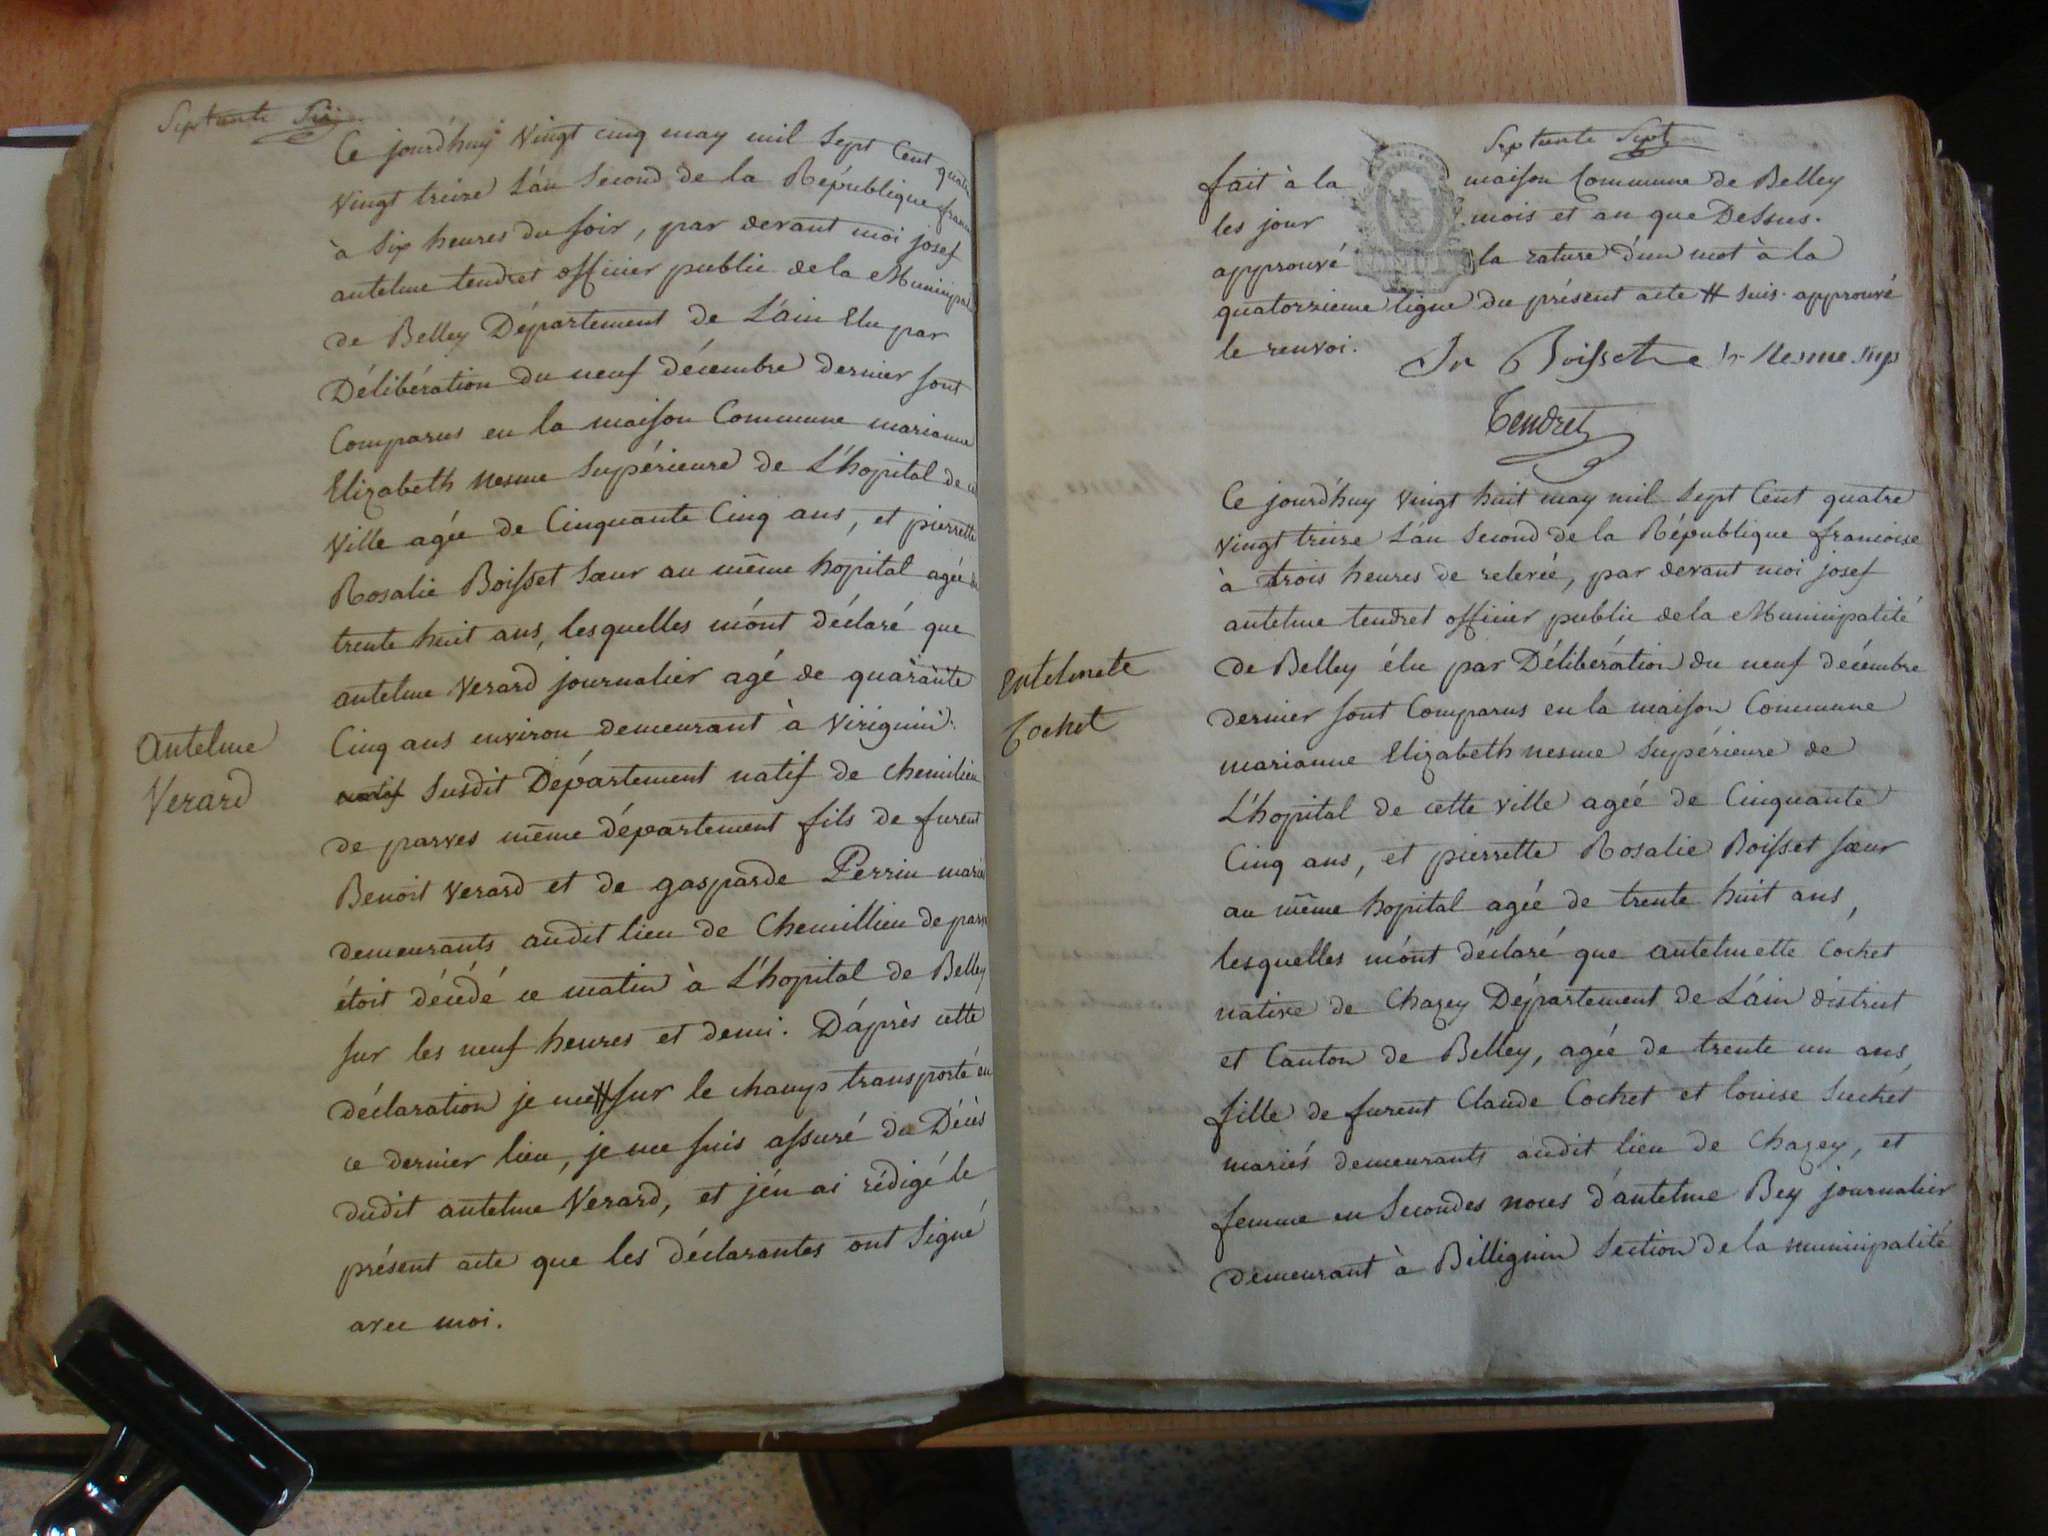 Septante Six
Ce jourd'huy vingt cinq may mil sept cent quatre
vingt treize L'an second de la République
à six heures du soir, par devant moi josef
antelme tendret officier public de la
de Belley Département de L'ain Elu par
Délibération du neuf décembre dernier sont
Comparus en la maison Commune marianne
Elizabeth nesme supérieure de L'hopital de
ville agée de Cinquante Cinq ans, et pierrette
Rosalie Boisset soeur au même hopital agée de
trente huit ans, lesquelles m'ont déclaré que
antelme Verard journalier agé de quarante
Cinq ans environ demeurant à virignin
susdit Département natif de chemilieu
de parves même département fils de furent
Benoit Verard et de gasparde Perrin mariés
demeurants audit lieu de Chemillieu de
étoit décédé ce matin à L'hopital de Belley
sur les neuf heures et demi. D'après cette
déclaration je me # sur le champs transporté en
ce dernier lieu, je me suis assuré du Décès
dudit antelme Verard, et j'en ai rédigé le
présent acte que les déclarantes ont signé
avec moi.
antelme
Verard
Septante Sept
fait à la maison Commune de Belley
les jour mois et an que Dessus.
approuvé la rature d'un mot à la
quatorzieme ligne du présent acte # suis. approuvé
le renvoi.
Sr Boisset Sr Nesme sup
Tendret
Ce jourd'huy vingt huit may mil sept cent quatre
vingt treize L'an second de la République francoise
à trois heures de relevée, par devant moi josef
antelme tendret officier public de la Municipalité
de Belley élu par Délibération du neuf décembre
dernier sont Comparus en la maison Commune
marianne Elizabeth nesme supérieure de
L'hopital de cette ville agée de Cinquante
Cinq ans, et pierrette Rosalie Boisset soeur
au même hopital agée de trente huit ans,
lesquelles m'ont déclaré que antelmette Cochet
native de Chazey Département de L'ain district
et Canton de Belley, agée de trente un ans,
fille de furent Claude Cochet et louise Suchet
mariés demeurants audit lieu de Chazey, et
femme en secondes noces d'antelme Bey journalier
demeurant à Billignin section de la municipalité
Entelmete
Cochet